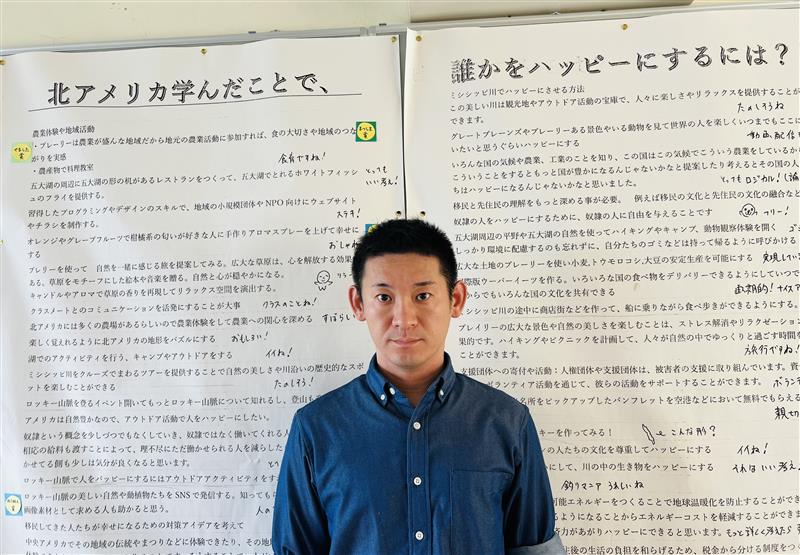 北アメリカ学んだことで、
農業体験や地域活動
・プレーリーは農業が盛んな地域だから地元の農業活動に参加すれば、食の大切さや地域のつな
がりを実感
食育ですね!
・農産物で料理教室
五大湖の周辺に五大湖の形の机があるレストランをつくって、五大湖でとれるホワイトフィッシ
ュのフライを提供する。
とっても
いい考え!
習得したプログラミングやデザインのスキルで、地域の小規模団体やNPO向けにウェブサイト
やチラシを制作する。
ステキ!
オレンジやグレープフルーツで柑橘系の匂いが好きな人に手作りアロマスプレーを上げて幸せに
する
おしゃれ
プレリーを使って 自然を一緒に感じる旅を提案してみる。広大な草原は、心を解放する効果が
ある。草原をモチーフにした絵本や音楽を贈る。自然と心が穏やかになる。
キャンドルやアロマで草原の香りを再現してリラックス空間を演出する。
クラスメートとのコミュニケーションを活発にすることが大事
クラスのことね!
北アメリカには多くの農場があるらしいので農業体験をして農業への関心を深める
すばらし
楽しく覚えれるように北アメリカの地形をパズルにする
おもしろい!
湖でのアクティビティを行う、キャンプやアウトドアをする
イイね!
ミシシッピ川をクルーズでまわるツアーを提供することで自然の美しさや川沿いの歴史的なスポ
ットを楽しむことができる
たのしそう!
ロッキー山脈を登るイベント開いてもっとロッキー山脈について知れるし、登山も
アメリカは自然豊かなので、アウトドア活動で人をハッピーにしたい。
奴隷という概念を少しづつでもなくしていき、奴隷ではなく働いてくれる人
相応の給料も渡すことによって、理不尽にただ働かせられる人を減らした
かせてる側も少しは気分が良くなると思います。
ロッキー山脈で人をハッピーにするにはアウトドアアクティビティをす
ロッキー山脈の美しい自然や動植物たちをSNSで発信する。知っても
画像素材として求める人も助かると思う。
移民してきた人たちが幸せになるための対策アイデアを考えて
中央アメリカでその地域の伝統やまつりなどに体験できたり、その地
誰かをハッピーにするには?
ミシシッピ川でハッピーにさせる方法
この美しい川は観光地やアウトドア活動の宝庫で、人々に楽しさやリラックスを提供することが
たのしそうね
グレートプレーンズやプレーリーある景色やいる動物を見て世界の人を楽しくいつまでもここに
いたいと思うぐらいハッピーにする
動画配信
いろんな国の気候や農業、工業のことを知り、この国はこの気候でこういう農業をしているから
こういうことをするともっと国が豊かになるんじゃないかなと提案したり考えるとその国の人
ちはハッピーになるんじゃないかなと思いました。
とってもロジカル!
移民と先住民の理解をもっと深める事が必要。 例えば移民の文化と先住民の文化の融合など
奴隷の人をハッピーにするために、奴隷の人に自由を与えることです
フリー!
五大湖周辺の平野や五大湖の自然を使ってハイキングやキャンプ、動物観察体験を開く
しっかり環境に配慮するのも忘れずに、自分たちのゴミなどは持って帰るように呼びかける
広大な土地のプレーリーを使い小麦,トウモロコシ,大豆の安定生産を可能にする
実現してい
際版ウーバーイーツを作る。いろいろな国の食べ物をデリバリーできるようにしていつで
からでもいろんな国の文化を共有できる
画期的! ナイスア
シッピ川の途中に商店街などを作って、船に乗りながら食べ歩きができるようにする。
プレイリーの広大な景色や自然の美しさを楽しむことは、ストレス解消やリラクゼーション
果的です。ハイキングやピクニックを計画して、人々が自然の中でゆっくりと過ごす時間を
ことができます。
旅行ですね!
支援団体への寄付や活動:人権団体や支援団体は、被害者の支援に取り組んでいます。資
ボランティア活動を通じて、彼らの活動をサポートすることができます。
名所をピックアップしたパンフレットを空港などにおいて無料でもらえる
親切
キーを作ってみる!
こんな形?
ンの人たちの文化を尊重してハッピーにする
イイね!
にして、川の中の生き物をハッピーにする
それはいい考え
釣りマニア うれしいね
可能エネルギーをつくることで地球温暖化を防止することができ
るようになることからエネルギーコストを軽減することができま
労力があがりハッピーにできると思います。
もっと詳しく
住後の生活の負担を和らげるため、税金から分ける制度をつ